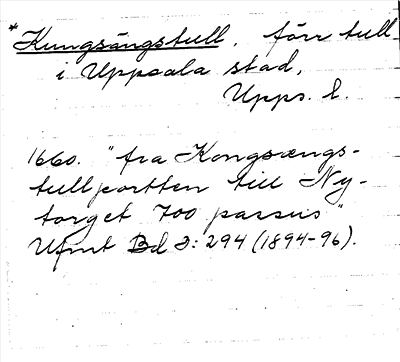 *Kungsängstull, förr tull
i Uppsala stad,
Upps. l.
1660. "fra Kongsængs-
tullportten till Ny-
torget 700 passus"
Ufmt Bd 3: 294 (1894-96).